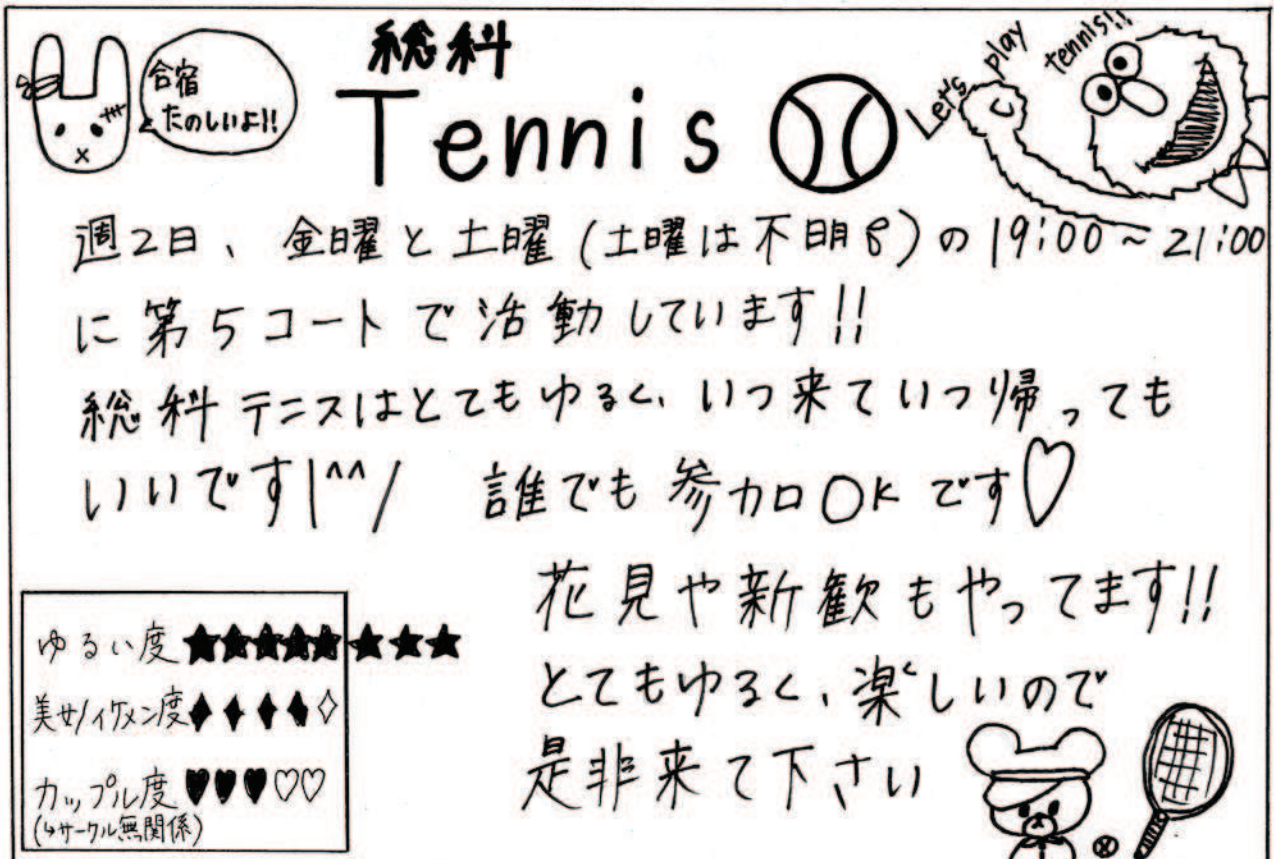 合宿
たのしいよ!!
総科
Tennis
Let's play tennis!!
週2日、金曜と土曜(土曜は不明)の19:00~21:00
に第5コートで活動しています!!
総科テニスはとてもゆるく、いつ来ていつ帰っても
いいです|^^/ 誰でも参加OKです♡
花見や新歓もやってます!!
とてもゆるく、楽しいので
是非来て下さい
ゆるい度★★★★★★★★
美女/イケメン度♦♦♦♦♢
カップル度♥♥♥♡♡
(↳サークル無関係)